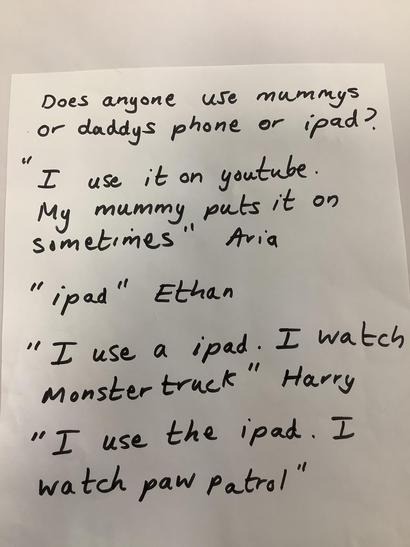 Does anyone use mummys
or daddys phone or ipad?
"I use it on youtube.
My mummy puts it on
sometimes" Aria
"ipad" Ethan
"I use a ipad. I watch
Monster truck" Harry
"I use the ipad. I
watch paw patrol"